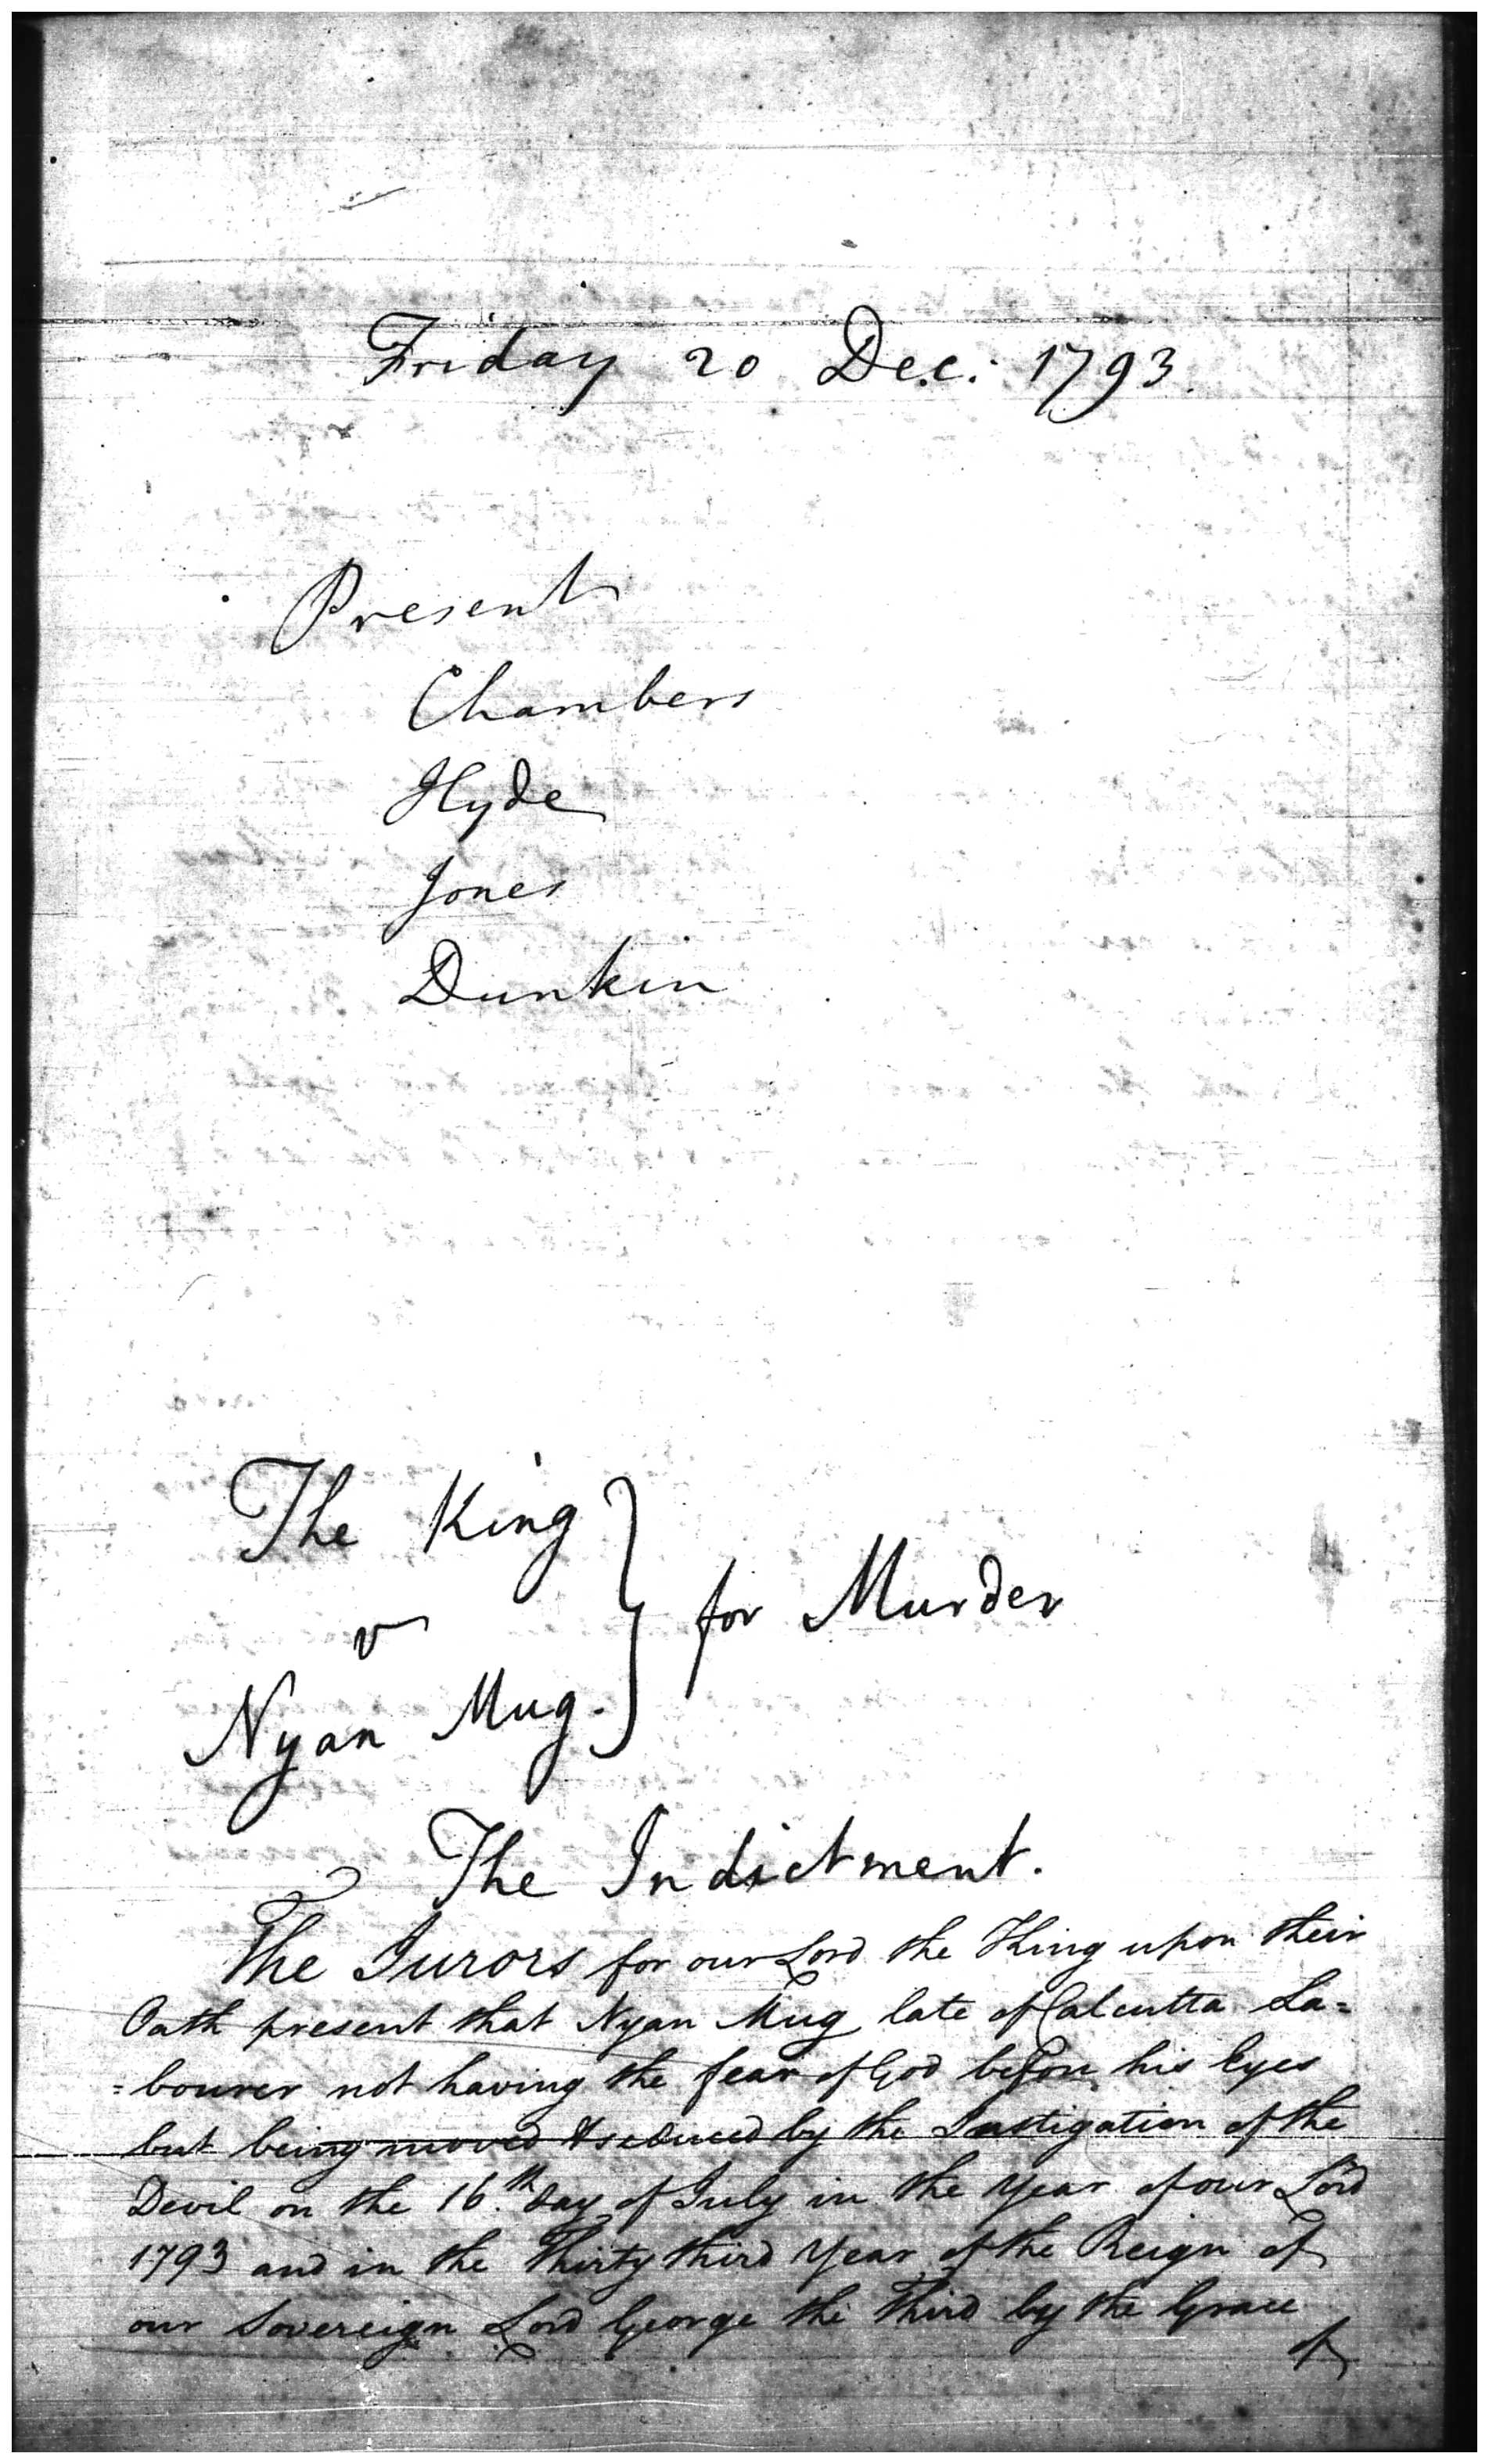 Friday 20 Dec: 1793.
Present
Chambers
Hyde
Jones
Dunkin
The King
v
Nyan Mug.
} for Murder
The Indictment.
The Jurors for our Lord the King upon their
Oath present that Nyan Mug late of Calcutta La=
=bourer not having the fear of God before his Eyes
but being moved & seduced by the Instigation of the
Devil on the 16.th day of July in the Year of our Lord
1793 and in the Thirty third Year of the Reign of
our Sovereign Lord George the Third by the Grace
of